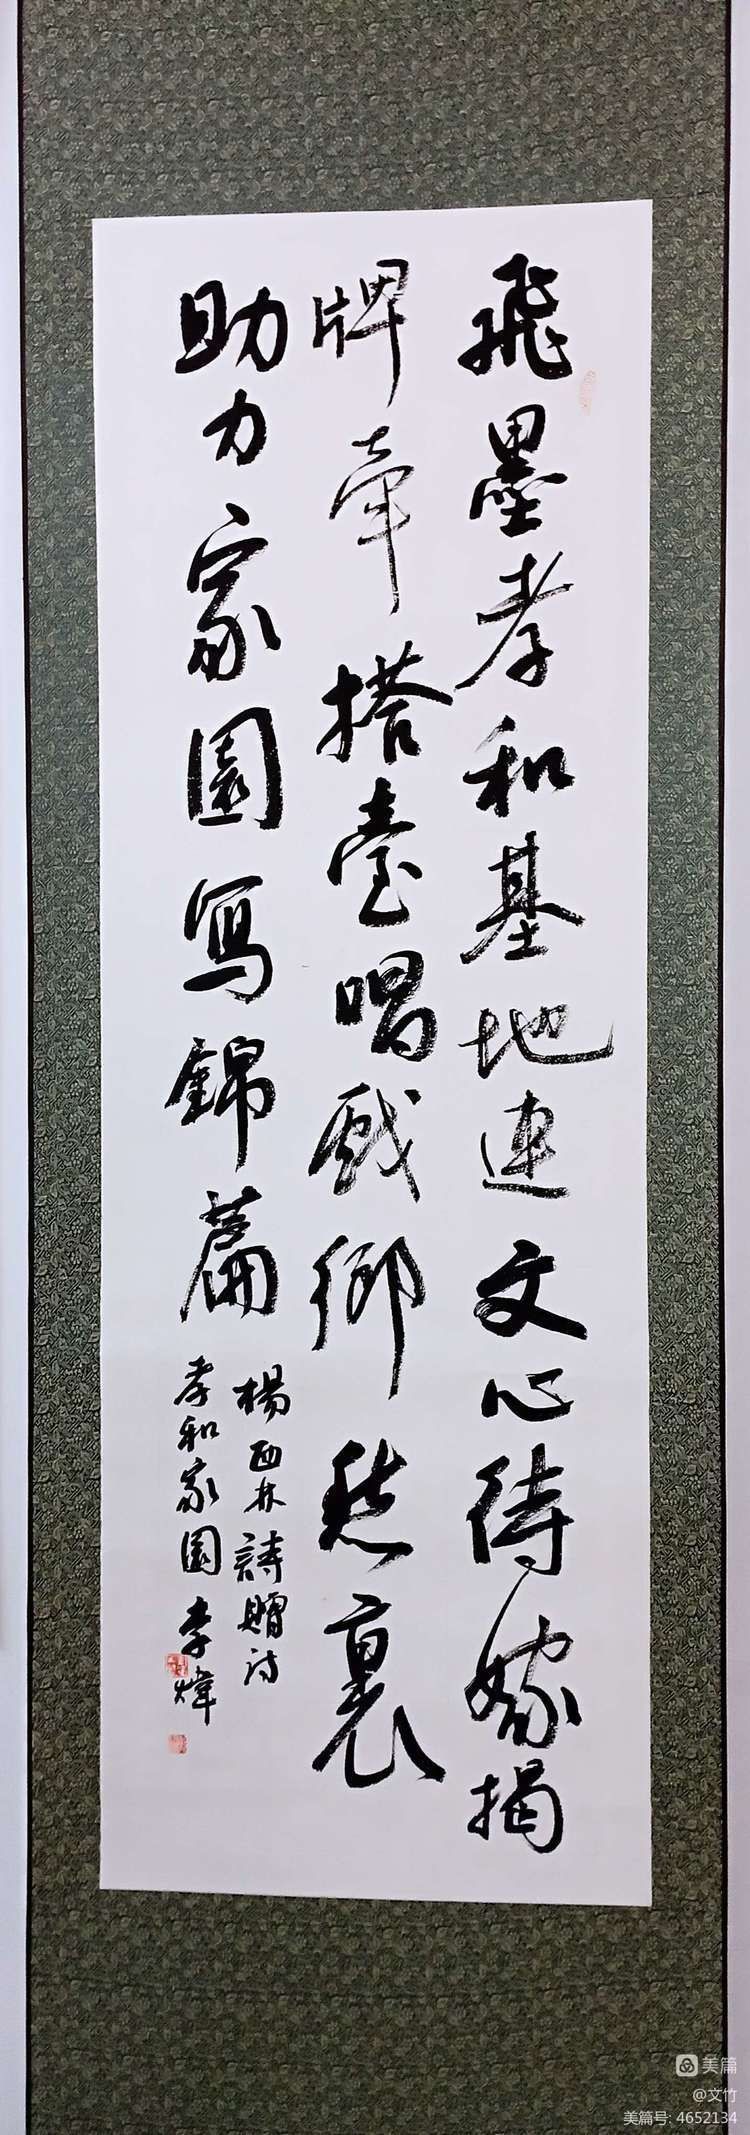 飛墨孝和基地連文心待嫁揭
牌牽搭臺唱戲鄉愁裏
助力家園寫錦篇
楊西林詩贈詩
孝和家園 李煒
美篇
@文竹
美篇号: 4652134